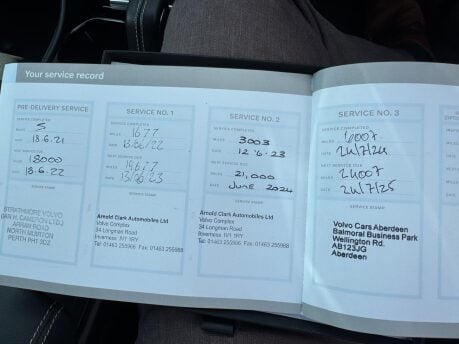 Your service record
PRE-DELIVERY SERVICE
SERVICE COMPLETED
MILES 5
DATE 18.6.21
NEXT SERVICE DUE
MILES 18000
DATE 18.6.22
SERVICE STAMP
STRATHMORE VOLVO
ARRAN ROAD
NORTH MUIRTON
PERTH PH1 3DZ
SERVICE NO. 1
SERVICE COMPLETED
MILES 1677
DATE 13/06/22
NEXT SERVICE DUE
MILES
DATE 13/06/23
SERVICE STAMP
Arnold Clark Automobiles Ltd
Volvo Complex
34 Longman Road
Inverness IV1 1RY
Tel: 01463 255906 Fax: 01463 255988
SERVICE NO. 2
SERVICE COMPLETED
MILES 3003
DATE 12.6.23
NEXT SERVICE DUE
MILES 21,000
DATE JUNE 2024
SERVICE STAMP
Arnold Clark Automobiles Ltd
Volvo Complex
34 Longman Road
Inverness IV1 1RY
Tel: 01463 255906 Fax: 01463 255988
SERVICE NO. 3
SERVICE COMPLETED
MILES 6007
DATE 24/7/24
NEXT SERVICE DUE
MILES 24007
DATE 24/7/25
SERVICE STAMP
Volvo Cars Aberdeen
Balmoral Business Park
Wellington Rd.
AB123JG
Aberdeen